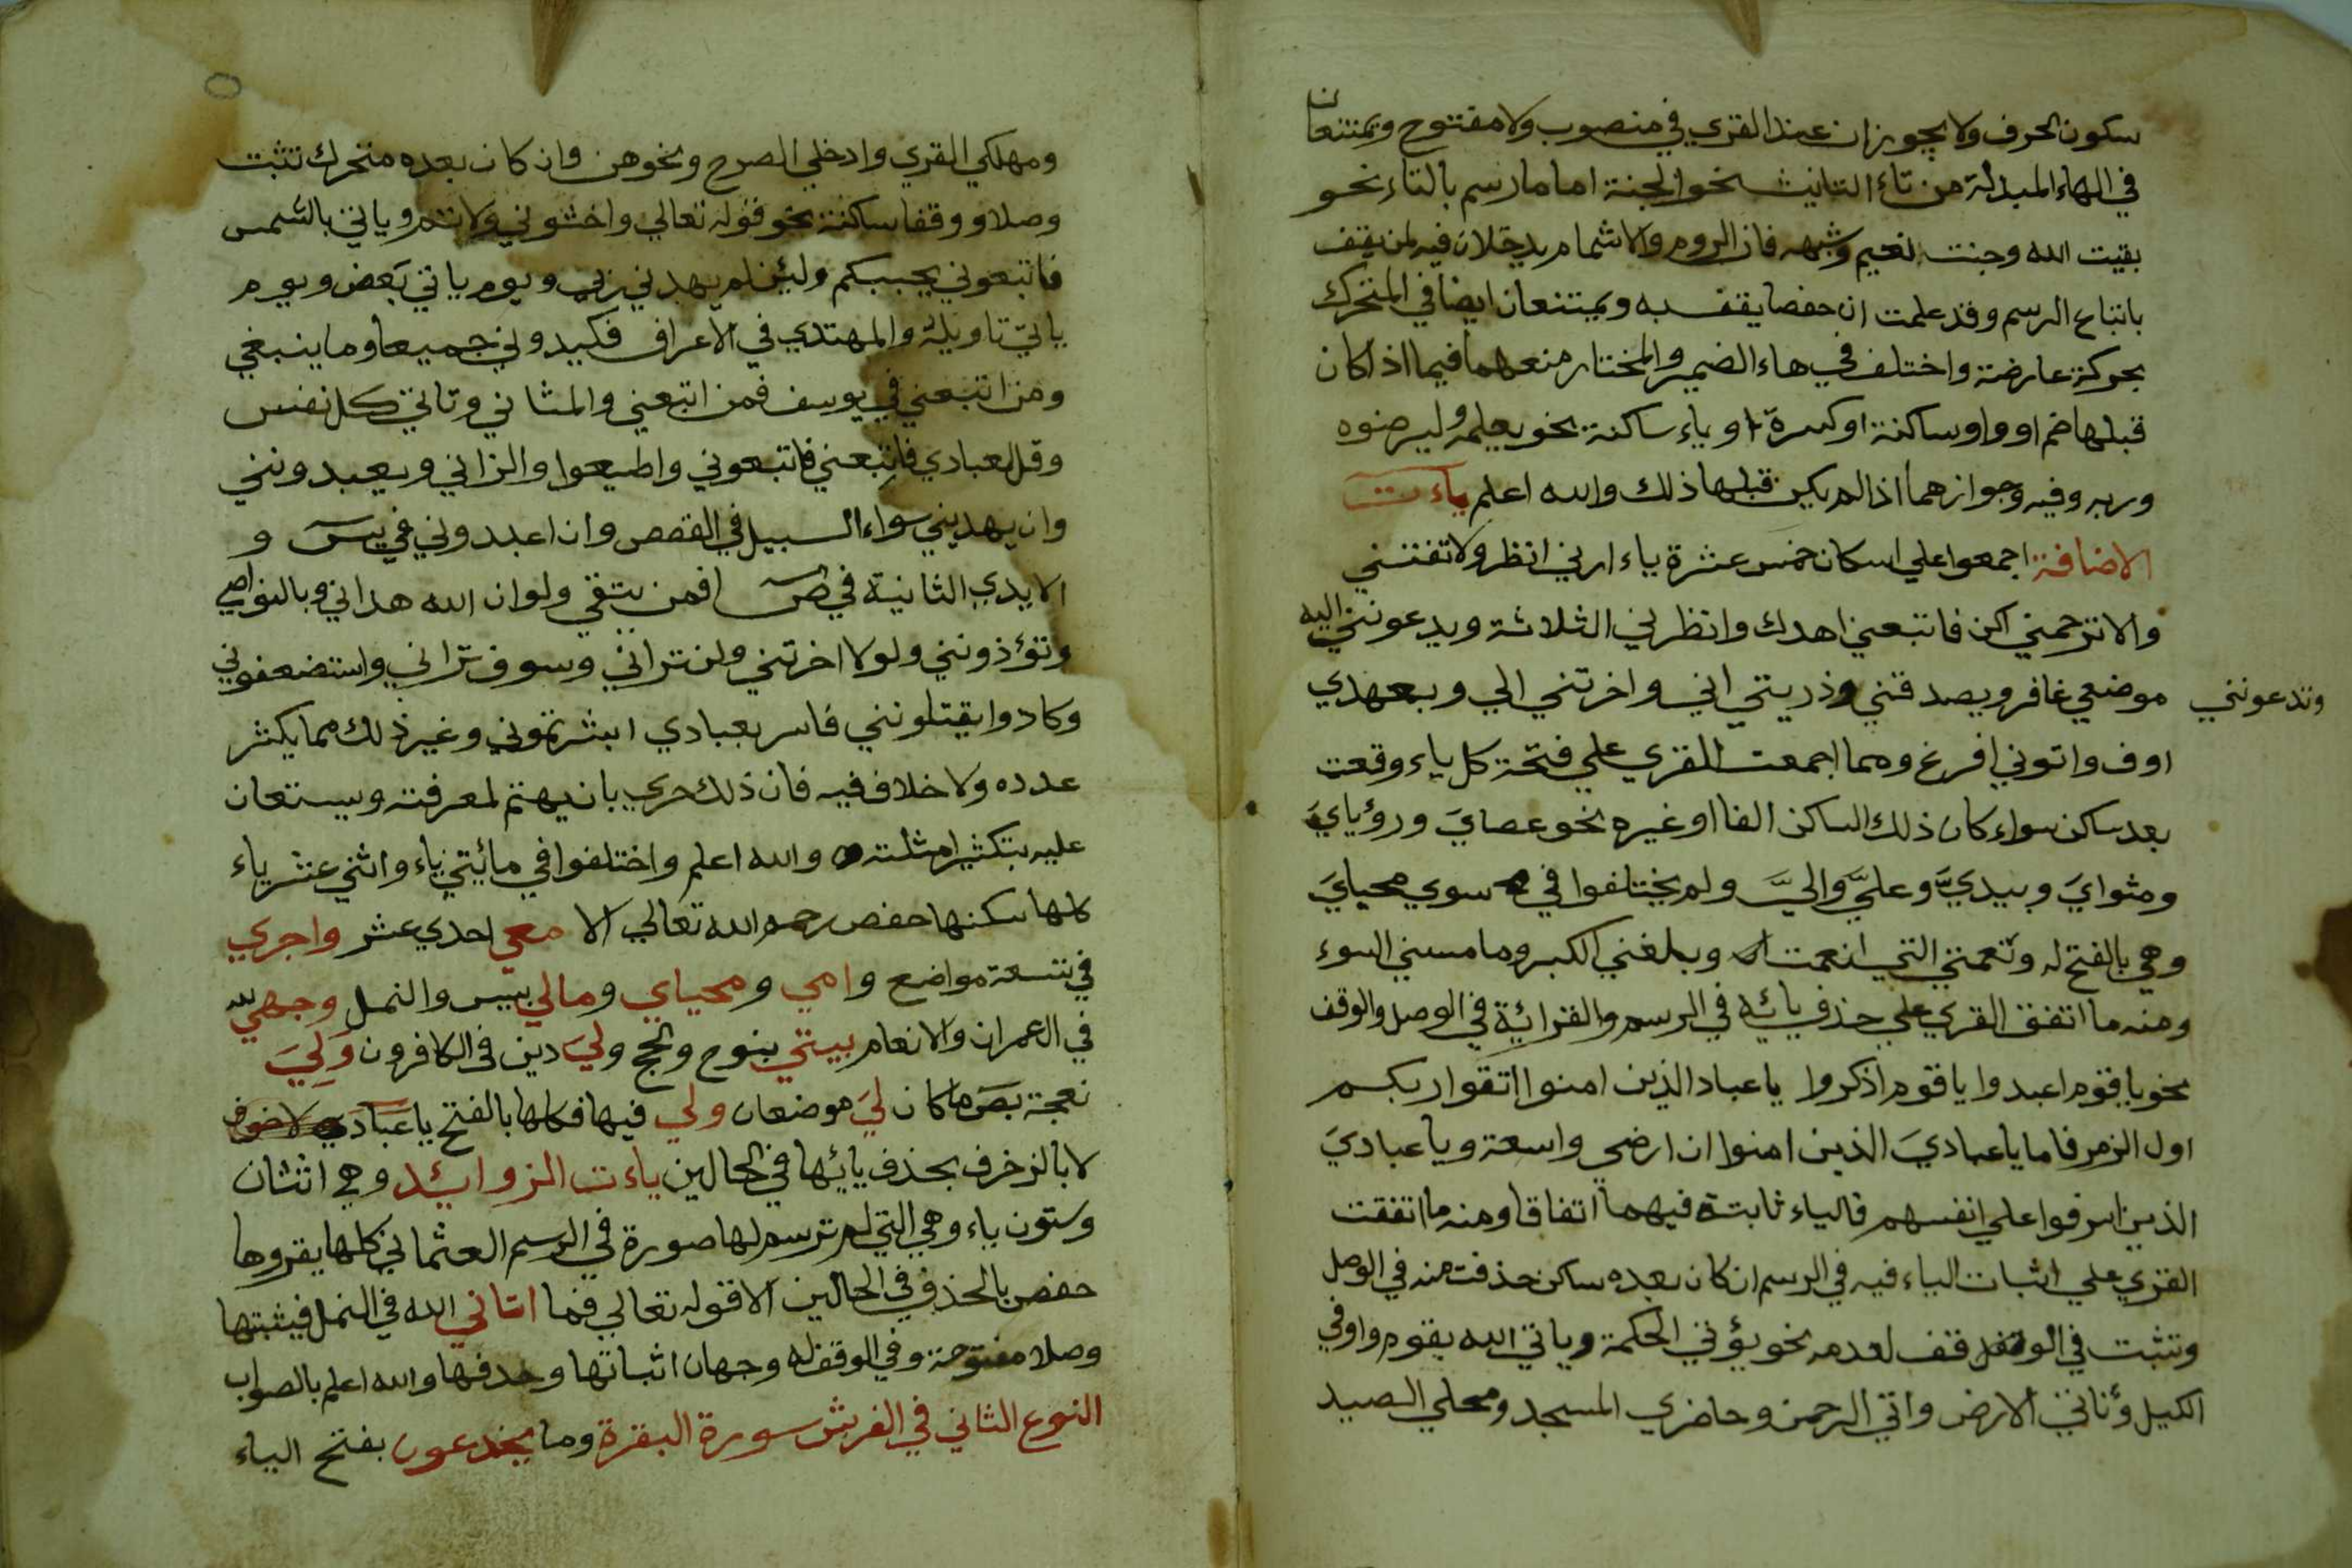 سكون الحرف ولا يجوزان عند القرى في منصوب ولا مفتوح ويمتنعان
في الهاء المبدلة من تاء التانيث نحو الجنة اما ما رسم بالتاء نحو
بقيت الله وجنت نعيم وشبهه فان الروم والاشمام يدخلان فيه لمن يقف
باتباع الرسم وقد علمت ان حفصا يقف به ويمتنعان ايضا في المتحرك
بحركة عارضة واختلف في هاء الضمير والمختار منعهما فيما اذا كان
قبلها ضم او واو ساكنة او كسرة او ياء ساكنة نحو يعلمه وليرضوه
وربه وفيه وجوازهما اذا لم يكن قبلها ذلك والله اعلم ياءت
الاضافة اجمعوا علي اسكان خمس عشرة ياء ارني انظر ولا تفتني
والا ترحمني اكن فاتبعني اهدك وانظرني الثلاثة ويدعونني اليه
وتدعونني موضعي غافر ويصدقني وذريتي اني واخرتني الي وبعهدي
اوف واتوني افرغ ومما اجمعت القرى علي فتحة كل ياء وقعت
بعد ساكن سواء كان ذلك الساكن الفا او غيره نحو عصايَ ورؤيايَ
ومثوايَ وبيديَّ وعليَّ واليَّ ولم يختلفوا في سوي محيايَ
وهي بالفتح له ونعمتي التي انعمت وبلغني الكبر وما مسني السوء
ومنه ما اتفق القرى علي حذف يائه في الرسم والقرائة في الوصل والوقف
نحو يا قوم اعبدوا يا قوم اذكروا يا عباد الذين امنوا اتقوا ربكم
اول الزمر فاما يا عباديَ الذين امنوا ان ارضي واسعة ويا عباديَ
الذين اسرفوا علي انفسهم فالياء ثابتة فيهما اتفاقا ومنه ما اتفقت
القرى علي اثبات الياء فيه في الرسم ان كان بعده ساكن حذفت منه في الوصل
وتثبت في الوقف لعدمه نحو يؤتي الحكمة وياتي الله بقوم واوفي
الكيل وناتي الارض واتي الرحمن وحاضري المسجد ومحلي الصيد
ومهلكي القرى وادخلي الصرح ونحوهن وان كان بعده متحرك تثبت
وصلا ووقفا ساكنة نحو قوله تعالي واخشوني ولاتم وياتي بالشمس
فاتبعوني يحببكم ولئن لم يهدني ربي ويوم ياتي بعض ويوم
ياتي تاويله والمهتدي في الاعراف فكيدوني جميعا وما ينبغي
ومن اتبعني في يوسف فمن اتبعني والمثاني وتاتي كل نفس
وقل لعبادي فاتبعني فاتبعوني واطيعوا والزاني ويعبدونني
وان يهديني سواء السبيل في القصص وان اعبدوني في يس و
الايدي الثانية في ص افمن يتقي ولوان الله هداني وبالنواصي
وتؤذونني ولولا اخرتني ولن تراني وسوف تراني واستضعفوني
وكادوا يقتلونني فاسر بعبادي ابشرتموني وغير ذلك مما يكثر
عدده ولا خلاف فيه فان ذلك حري بان يهتم لمعرفته ويستعان
عليه بتكثير امثلته والله اعلم واختلفوا في مائيتي ياء واثني عشر ياء
كلها سكنها حفص رحمه الله تعالي الا معي احدي عشر واجري
في تسعة مواضع وامي ومحياي ومالي بيس والنمل وجهي لله
في ال عمران والانعام بيتي بنوح والحج وليَ دين في الكافرون وَلِيَ
نعجة بص ما كان ليَ موضعان ولي فيها فكلها بالفتح يا عبادي لاخوف
لا بالزخرف بحذف يائها في الحالين ياءت الزوايد وهي اثنثان
وستون ياء وهي التي لم ترسم لها صورة في الرسم العثماني كلها يقروها
حفص بالحذف في الحالين الا قوله تعالي فما اتاني الله في النمل فيثبتها
وصلا مفتوحة وفي الوقف له وجهان اثباتها وحذفها والله اعلم بالصواب
النوع الثاني في الفرش سورة البقرة وما يخدعون بفتح الياء